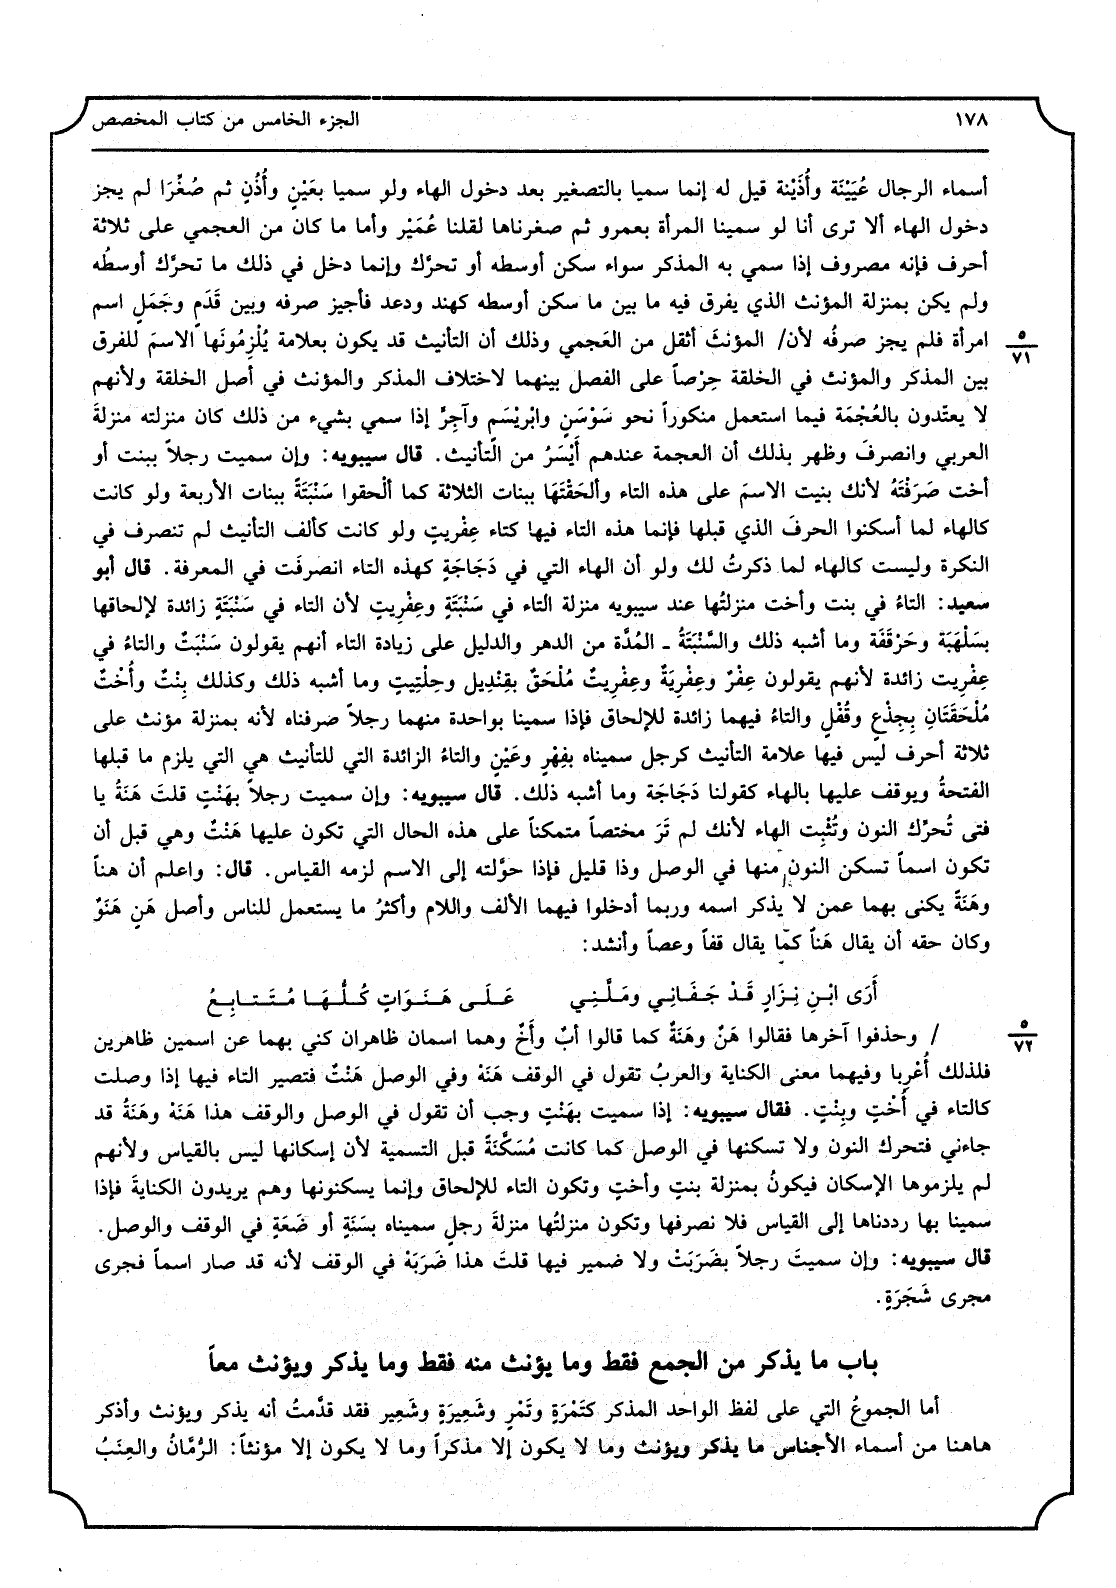 ١٧٨ الجزء الخامس من كتاب المخصص
أسماء الرجال عُيَيْنَة وأُذَيْنة قيل له إنما سميا بالتصغير بعد دخول الهاء ولو سميا بعَيْنٍ وأُذُنٍ ثم صُغِّرَا لم يجز
دخول الهاء ألا ترى أنا لو سمينا المرأة بعمرو ثم صغرناها لقلنا عُمَيْر وأما ما كان من العجمي على ثلاثة
أحرف فإنه مصروف إذا سمي به المذكر سواء سكن أوسطه أو تحرَّك وإنما دخل في ذلك ما تحرَّك أوسطُه
ولم يكن بمنزلة المؤنث الذي يفرق فيه ما بين ما سكن أوسطه كهند ودعد فأجيز صرفه وبين قَدَمٍ وجَمَلٍ اسم
امرأة فلم يجز صرفُه لأن/ المؤنثَ أثقل من العَجمي وذلك أن التأنيث قد يكون بعلامة يُلْزِمُونَها الاسمَ للفرق
٥
٧١
بين المذكر والمؤنث في الخلقة حِرْصاً على الفصل بينهما لاختلاف المذكر والمؤنث في أصل الخلقة ولأنهم
لا يعتّدون بالعُجْمَة فيما استعمل منكوراً نحو سَوْسَنٍ وابْريْسَمٍ وآجِرٍّ إذا سمي بشيء من ذلك كان منزلته منزلةَ
العربي وانصرفَ وظهر بذلك أن العجمة عندهم أَيْسَرُ من التأنيث. قال سيبويه: وإن سميت رجلاً ببنت أو
أخت صَرَفْتَهُ لأنك بنيت الاسمَ على هذه التاء وألحَقْتَهَا ببنات الثلاثة كما ألْحقوا سَنْبَتَةً ببنات الأربعة ولو كانت
كالهاء لما أسكنوا الحرفَ الذي قبلها فإنما هذه التاء فيها كتاء عِفْريتٍ ولو كانت كألف التأنيث لم تنصرف في
النكرة وليست كالهاء لما ذكرتُ لك ولو أن الهاء التي في دَجَاجَةٍ كهذه التاء انصرفَت في المعرفة. قال أبو
سعيد: التاءُ في بنت وأخت منزلتُها عند سيبويه منزلة التاء في سَنْبَتَةٍ وعِفْريتٍ لأن التاء في سَنْبَتَةٍ زائدة لإلحاقها
بسَلْهَبَة وحَرْقَفَة وما أشبه ذلك والسَّنْبَتَةُ ـ المُدَّة من الدهر والدليل على زيادة التاء أنهم يقولون سَنْبَتٌ والتاءُ في
عِفْريت زائدة لأنهم يقولون عِفْرٌ وعِفْريَةٌ وعِفْريتٌ مُلْحَقٌ بقِنْديل وحِلْتِيتٍ وما أشبه ذلك وكذلك بِنْتٌ وأُخْتٌ
مُلْحَقَتَانِ بِجِذْعٍ وقُفْلٍ والتاءُ فيهما زائدة للإلحاق فإذا سمينا بواحدة منهما رجلاً صرفناه لأنه بمنزلة مؤنث على
ثلاثة أحرف ليس فيها علامة التأنيث كرجل سميناه بفِهْرٍ وعَيْنٍ والتاءُ الزائدة التي للتأنيث هي التي يلزم ما قبلها
الفتحةُ ويوقف عليها بالهاء كقولنا دَجَاجَة وما أشبه ذلك. قال سيبويه: وإن سميت رجلاً بهَنْتٍ قلتَ هَنَةُ يا
فتى تُحرِّك النون وتُثْبِت الهاء لأنك لم تَرَ مختصاً متمكناً على هذه الحال التي تكون عليها هَنْتٌ وهي قبل أن
تكون اسماً تسكن النون منها في الوصل وذا قليل فإذا حوَّلته إلى الاسم لزمه القياس. قال: واعلم أن هناً
وهَنَةً يكنى بهما عمن لا يذكر اسمه وربما أدخلوا فيهما الألف واللام وأكثرُ ما يستعمل للناس وأصل هَنٍ هَنَوٌ
وكان حقه أن يقال هَناً كما يقال قفاً وعصاً وأنشد:
أَرَى ابْنِ نِزَارٍ قَدْ جَفَانِي ومَلَّنِي عَلَى هَنَوَاتٍ كُلُّهَا مُتَتابِعُ
/ وحذفوا آخرها فقالوا هَنٌ وهَنَةٌ كما قالوا أبٌ وأَخٌ وهما اسمان ظاهران كني بهما عن اسمين ظاهرين
٥
٧٢
فلذلك أُعْرِبا وفيهما معنى الكناية والعربُ تقول في الوقف هَنَهْ وفي الوصل هَنْتٌ فتصير التاء فيها إذا وصلت
كالتاء في أُخْتٍ وبِنْتٍ. فقال سيبويه: إذا سميت بهَنْتٍ وجب أن تقول في الوصل والوقف هذا هَنَهْ وهَنَةُ قد
جاءني فتحرك النون ولا تسكنها في الوصل كما كانت مُسَكَّنَةً قبل التسمية لأن إسكانها ليس بالقياس ولأنهم
لم يلزموها الإسكان فيكونُ بمنزلة بنتٍ وأختٍ وتكون التاء للإلحاق وإنما يسكنونها وهم يريدون الكنايةَ فإذا
سمينا بها رددناها إلى القياس فلا نصرفها وتكون منزلتُها منزلةَ رجلٍ سميناه بسَنَةٍ أو ضَعَةٍ في الوقف والوصل.
قال سيبويه: وإن سميتَ رجلاً بضَرَبَتْ ولا ضمير فيها قلتَ هذا ضَرَبَهْ في الوقف لأنه قد صار اسماً فجرى
مجرى شَجَرَةٍ.
باب ما يذكر من الجمع فقط وما يؤنث منه فقط وما يذكر ويؤنث معاً
أما الجموعُ التي على لفظ الواحد المذكر كتَمْرَةٍ وتَمْرٍ وشَعِيرَةٍ وشَعِير فقد قدَّمتُ أنه يذكر ويؤنث وأذكر
هاهنا من أسماء الأجناس ما يذكر ويؤنث وما لا يكون إلا مذكراً وما لا يكون إلا مؤنثاً: الرُّمَّانُ والعِنَبُ